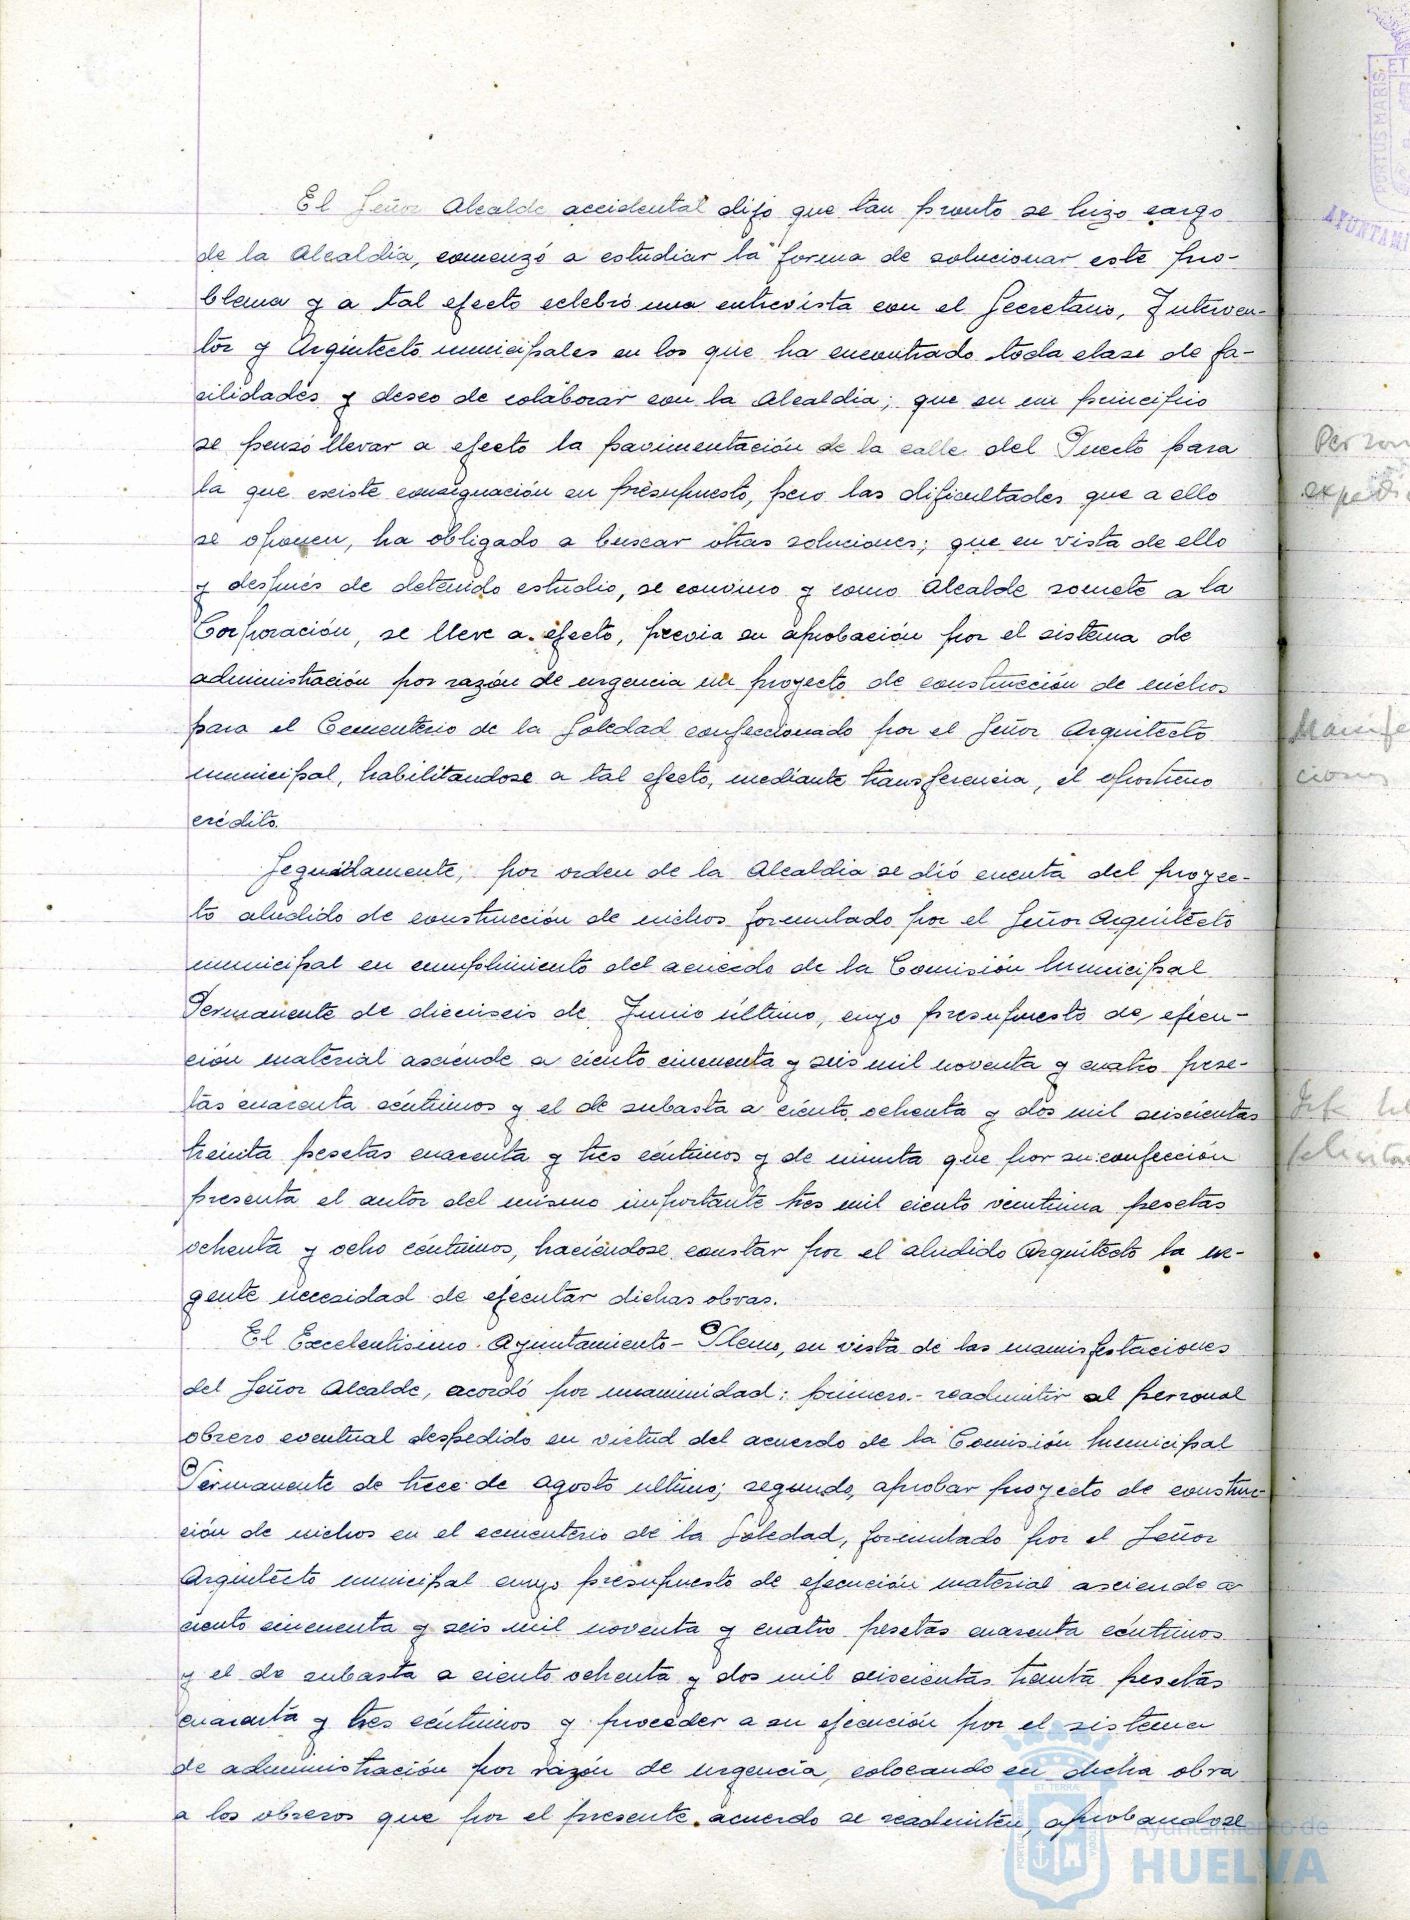 El Señor Alcalde accidental dijo que tan pronto se hizo cargo
de la Alcaldía, comenzó a estudiar la forma de solucionar este pro-
blema y a tal efecto celebró una entrevista con el Secretario, Interven-
tor y Arquitecto municipales en los que ha encontrado toda clase de fa-
cilidades y deseo de colaborar con la Alcaldia; que en un principio
se pensó llevar a efecto la pavimentación de la calle del Puerto para
la que existe consignación en presupuesto, pero las dificultades que a ello
se oponen, ha obligado a buscar otras soluciones; que en vista de ello
y después de detenido estudio, se convino y como Alcalde somete a la
Corporación, se lleve a efecto, previa su aprobación por el sistema de
administración por razón de urgencia un proyecto de construcción de nichos
para el Cementerio de la Soledad confeccionado por el Señor Arquitecto
municipal, habilitandose a tal efecto, mediante transferencia, el oportuno
crédito.
Seguidamente, por orden de la Alcaldia se dió cuenta del proyec-
to aludido de construcción de nichos formulado por el Señor Arquitecto
municipal en cumplimiento del acuerdo de la Comisión Municipal
Permanente de dieciseis de Junio último, cuyo presupuesto de ejecu-
ción material asciende a ciento cincuenta y seis mil noventa y cuatro pese-
tas cuarenta céntimos y el de subasta a ciento ochenta y dos mil seiscientas
treinta pesetas cuarenta y tres céntimos y de minuta que por su confección
presenta el autor del mismo importante tres mil ciento veintiuna pesetas
ochenta y ocho céntimos, haciéndose constar por el aludido Arquitecto la ur-
gente necesidad de ejecutar dichas obras.
El Excelentisimo Ayuntamiento-Pleno, en vista de las manisfestaciones
del Señor Alcalde, acordó por unanimidad: primero.- readmitir al personal
obrero eventual despedido en virtud del acuerdo de la Comisión Municipal
Permanente de trece de agosto ultimo; segundo, aprobar proyecto de construc-
ción de nichos en el cementerio de la Soledad, formulado por el Señor
Arquitecto municipal cuyo presupuesto de ejecución material asciende a
ciento cincuenta y seis mil noventa y cuatro pesetas cuarenta céntimos
y el de subasta a ciento ochenta y dos mil seiscientas treinta pesetas
cuarenta y tres céntimos y proceder a su ejecución por el sistema
de administración por razón de urgencia, colocando en dicha obra
a los obreros que por el presente acuerdo se readmiten, aprobandose
PORTUS MARIS
ET
AYUNTAMI
Person
expedi
Manife
ciones
ET TERRA
Ayuntamiento de
HUELVA